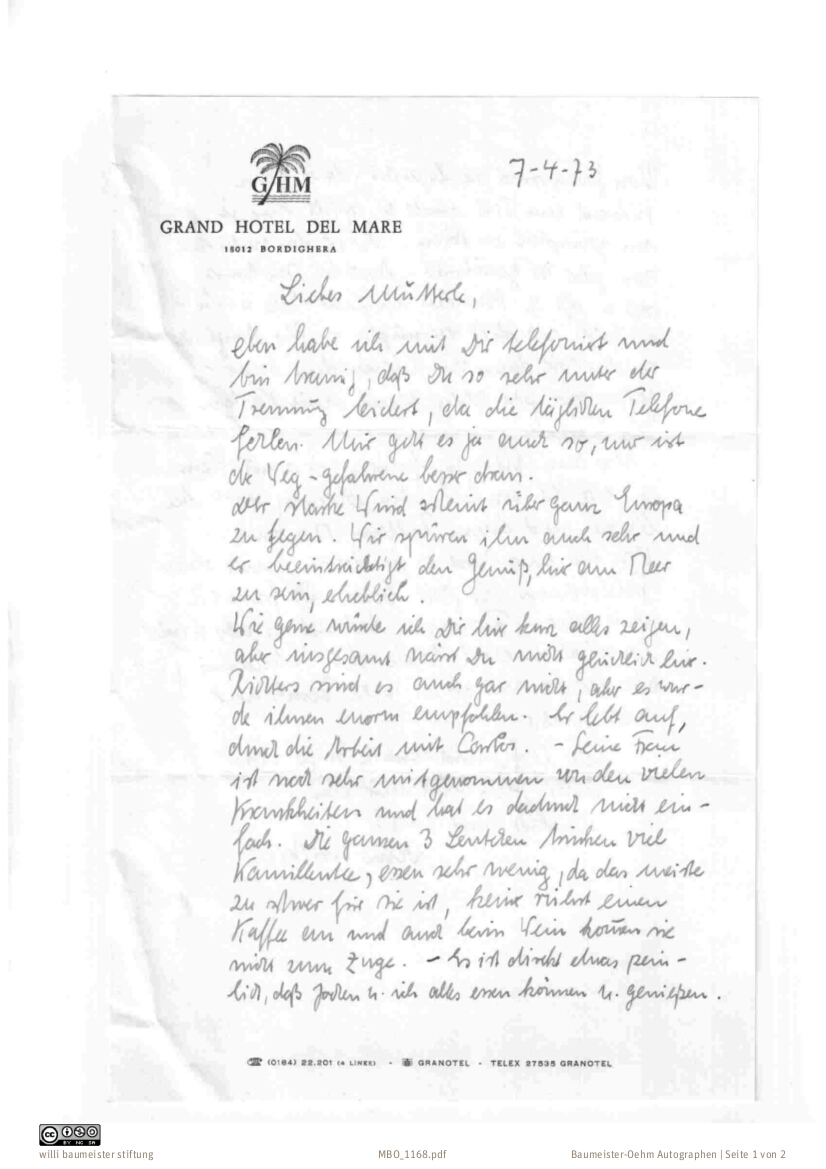 7-4-73
GHM
GRAND HOTEL DEL MARE
18012 BORDIGHERA
Liebes Mütterle,
eben habe ich mit Dir telefoniert und
bin traurig, daß Du so sehr unter der
Trennung leidest, da die täglichen Telefone
fehlen. Mir geht es ja auch so, nur ist
der Weg-gefahrene besser dran.
Der starke Wind scheint über ganz Europa
zu fegen. Wir spüren ihn auch sehr und
er beeinträchtigt den Genuß, hier am Meer
zu sein, erheblich.
Wie gerne würde ich Dir hier kurz alles zeigen,
aber insgesamt wärst Du nicht glücklich hier.
Richters sind es auch gar nicht, aber es wur-
de ihnen enorm empfohlen. Er lebt auf,
durch die Arbeit mit . - Seine Frau
ist noch sehr mitgenommen von den vielen
Krankheiten und hat es dadurch nicht ein-
fach. Die ganzen 3 Leutchen trinken viel
Kamillentee, essen sehr wenig, da das meiste
zu schwer für sie ist, keine rührt einen
Kaffee an und auch beim Wein kommen sie
nicht zum Zuge. - Es ist direkt etwas pein-
lich, daß Jochen u. ich alles essen können u. genießen.
(0184) 22.201 (4 LINES) - GRANOTEL - TELEX 27535 GRANOTEL
CC BY NC SA
willi baumeister stiftung MBO_1168.pdf Baumeister-Oehm Autographen | Seite 1 von 2